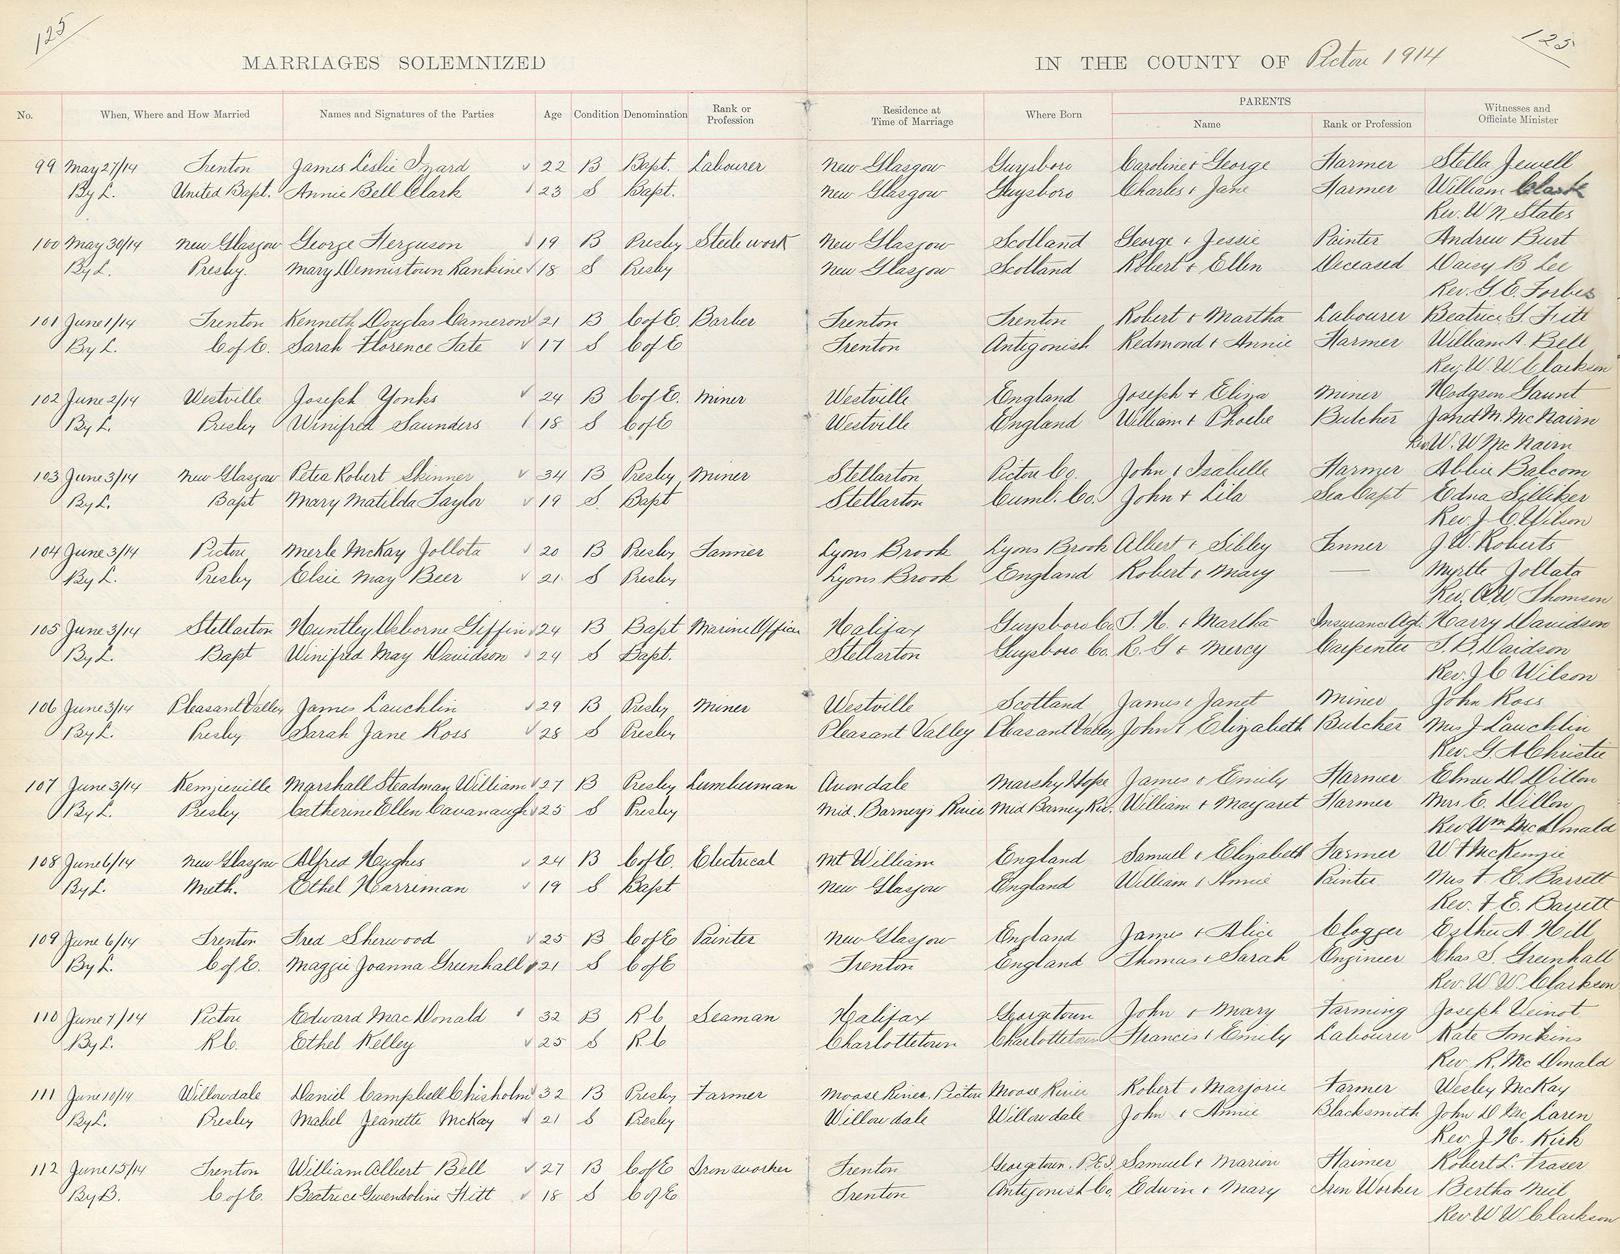 125
125
MARRIAGES SOLEMNIZED IN THE COUNTY OF Pictou 1914
No. When, Where and How Married Names and Signatures of the Parties Age Condition Denomination Rank or Profession Residence at Time of Marriage Where Born PARENTS Name Rank or Profession Witnesses and Officiate Minister
99 May 27/14 Trenton James Leslie Izard 22 B Bapt. Labourer New Glasgow Guysboro Caroline & George Farmer Stella Jewell
By L. United Bapt. Annie Bell Clark 23 S Bapt. New Glasgow Guysboro Charles & Jane Farmer William Clark
Rev. W N States
100 May 30/14 New Glasgow George Ferguson 19 B Presby Steele work New Glasgow Scotland George & Jessie Painter Andrew Burt
By L. Presby. Mary Dennistown Rankine 18 S Presby New Glasgow Scotland Robert & Ellen Deceased Daisy B Lee
Rev. G. E. Forbes
101 June 1/14 Trenton Kenneth Douglas Cameron 21 B C of E. Barber Trenton Trenton Robert & Martha Labourer Beatrice G Fitt
By L. C of E. Sarah Florence Tate 17 S C of E Trenton Antigonish Redmond & Annie Farmer William A. Bell
Rev. W. W Clarkson
102 June 2/14 Westville Joseph Yonks 24 B C of E. Miner Westville England Joseph & Eliza Miner Hodgson Gaunt
By L. Presby Winifred Saunders 18 S C of E Westville England William & Phoebe Butcher Janet M. McNairn
Rev W. W McNairn
103 June 3/14 New Glasgow Peter Robert Skinner 34 B Presby Miner Stellarton Pictou Co. John & Isabelle Farmer Abbie Balcom
By L. Bapt Mary Matilda Taylor 19 S. Bapt Stellarton Cumb. Co. John & Lila Sea Capt Edna Silliker
Rev. J. C. Wilson
104 June 3/14 Pictou Merle McKay Jollota 20 B Presby Tanner Lyons Brook Lyons Brook Albert & Sibley Tanner J. W. Roberts
By L. Presby Elsie May Beer 21 S Presby Lyons Brook England Robert & Mary — Myrtle Jollata
Rev. A W Thomson
105 June 3/14 Stellarton Huntley Osborne Giffin 24 B Bapt Marine Officer Halifax Guysboro Co. T. H. & Martha Insurance Agt. Harry Davidson
By L. Bapt Winifred May Davidson 24 S Bapt. Stellarton Guysboro Co. R. G & Mercy Carpenter T. B. Daidson
Rev. J C Wilson
106 June 3/14 Pleasant Valley James Lauchlin 29 B Presby Miner Westville Scotland James & Janet Miner John Ross
By L. Presby Sarah Jane Ross 28 S Presby Pleasant Valley Pleasant Valley John & Elizabeth Butcher Mrs J Lauchlin
Rev. G. A Christie
107 June 3/14 Kenzieville Marshall Steadman William 27 B Presby Lumberman Avondale Marshy Hope James & Emily Farmer Elmer D Dillon
By L. Presby Catherine Ellen Cavanaugh 25 S Presby Mid. Barneys River Mid Barney Riv. William & Margaret Farmer Mrs E. Dillon
Rev Wm McDonald
108 June 6/14 New Glasgow Alfred Hughes 24 B C of E. Electrical Mt William England Samuel & Elizabeth Farmer W F McKenzie
By L. Meth. Ethel Harriman 19 S Bapt New Glasgow England William & Annie Painter Mrs F. E. Barrett
Rev. F E. Barrett
109 June 6/14 Trenton Fred Sherwood 25 B C of E Painter New Glasgow England James & Alice Clogger Esther A Hill
By L. C of E. Maggie Joanna Greenhall 21 S C of E Trenton England Thomas & Sarah Engineer Chas S. Greenhall
Rev. W W Clarkson
110 June 7/14 Pictou Edward MacDonald 32 B R C Seaman Halifax Georgetown John & Mary Farming Joseph Veinot
By L. R C. Ethel Kelley 25 S R C Charlottetown Charlottetown Francis & Emily Labourer Kate Tomkins
Rev. R. McDonald
111 June 10/14 Willowdale Daniel Campbell Chisholm 32 B Presby Farmer Moose River, Pictou Moose River Robert & Marjorie Farmer Wesley McKay
By L. Presby Mabel Jeanette McKay 21 S Presby Willowdale Willowdale John & Annie Blacksmith John D McLaren
Rev. J. H. Kirk
112 June 15/14 Trenton William Albert Bell 27 B C of E Iron worker Trenton Georgetown. P.E.I. Samuel & Marion Farmer Robert L. Fraser
By B. C of E. Beatrice Gwendoline Fitt 18 S C of E Trenton Antigonish Co. Edwin & Mary Iron Worker Bertha Neil
Rev W W Clarkson